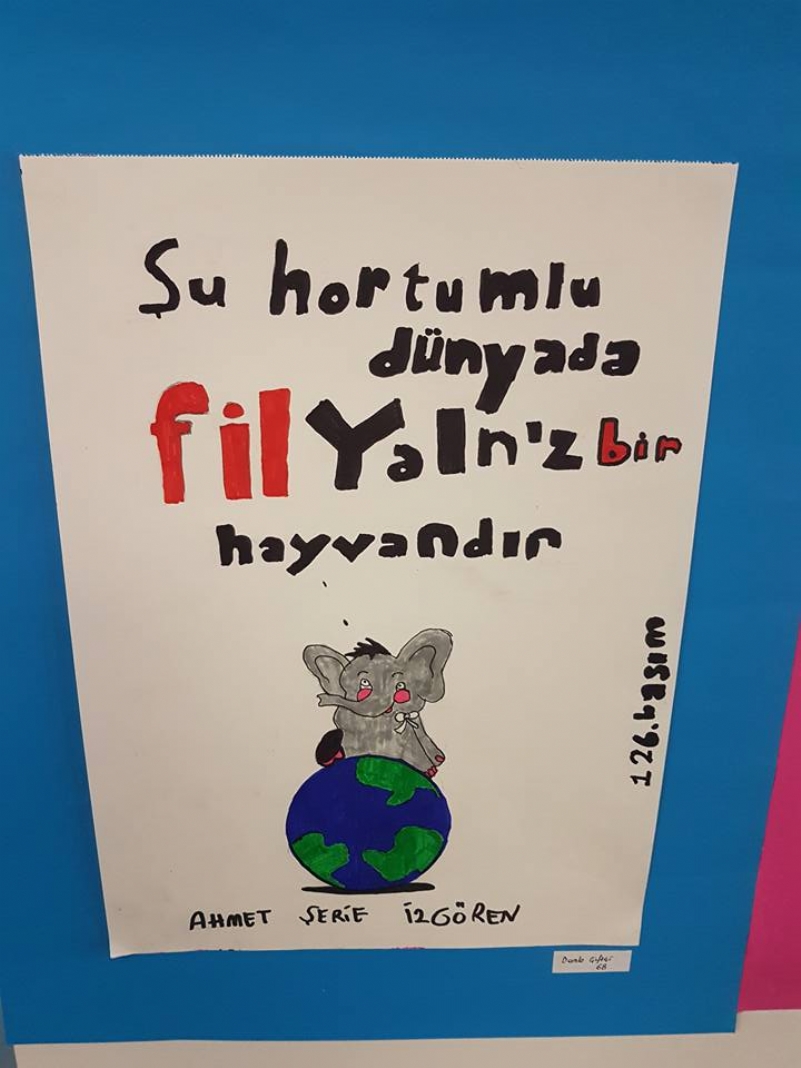 Şu hortumlu
dünyada
fil Yaln'z bir
hayvandır
126.basım
AHMET ŞERİF İZGÖREN
6B